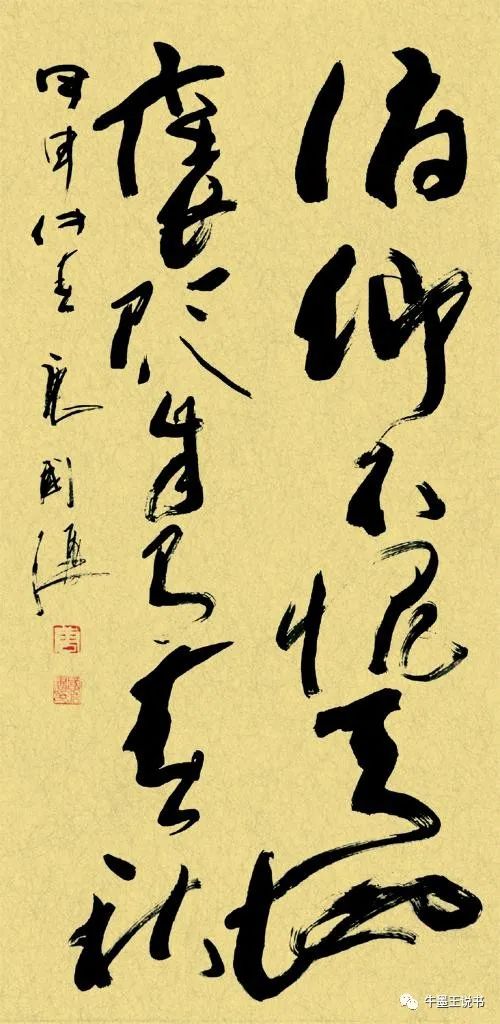 俯仰不愧天地
褒贬自有春秋
甲申仲春
牛墨王说书